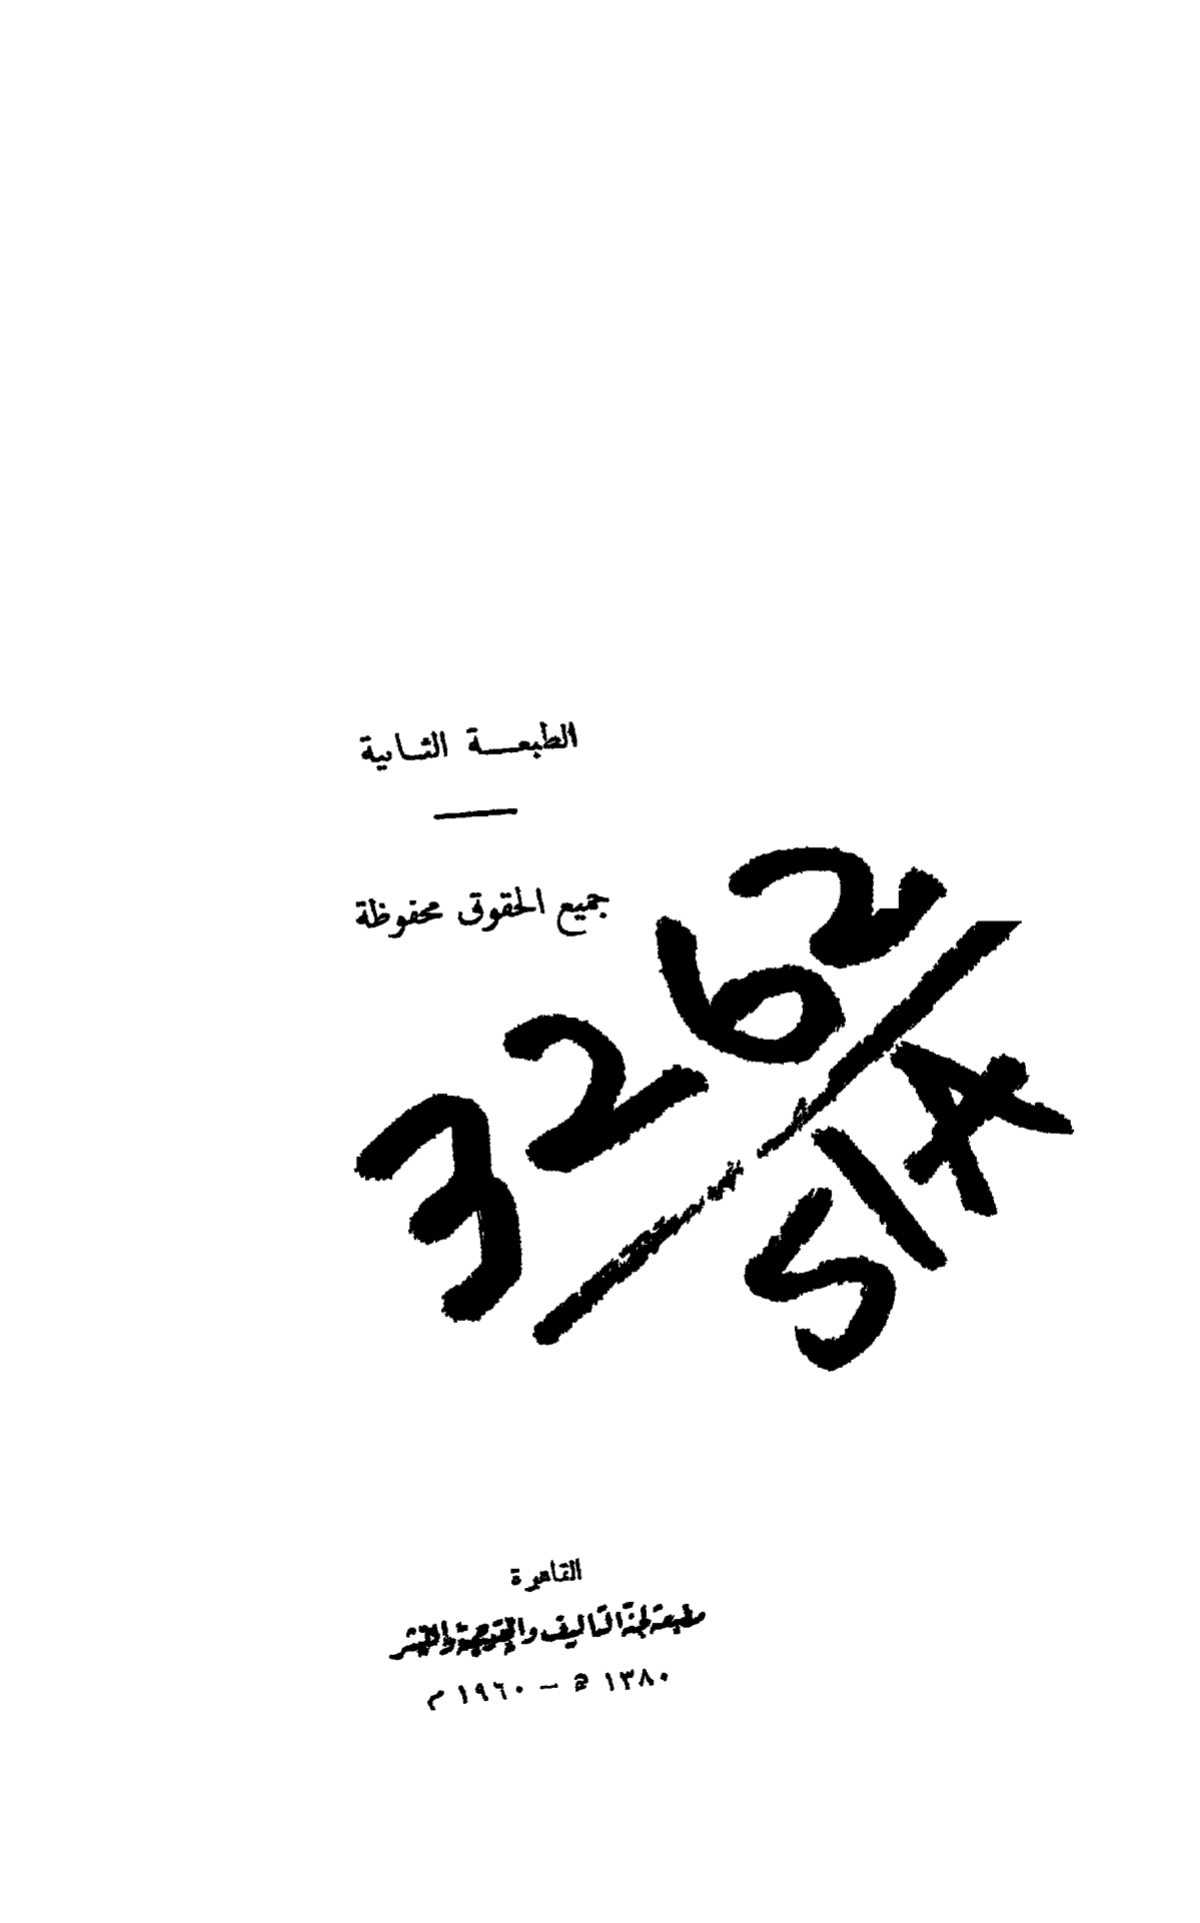 الطبعة الثانية
جميع الحقوق محفوظة
3262
SIA
القاهرة
مطبعة لجنة التأليف والترجمة والنشر
١٣٨٠ ه – ١٩٦٠ م